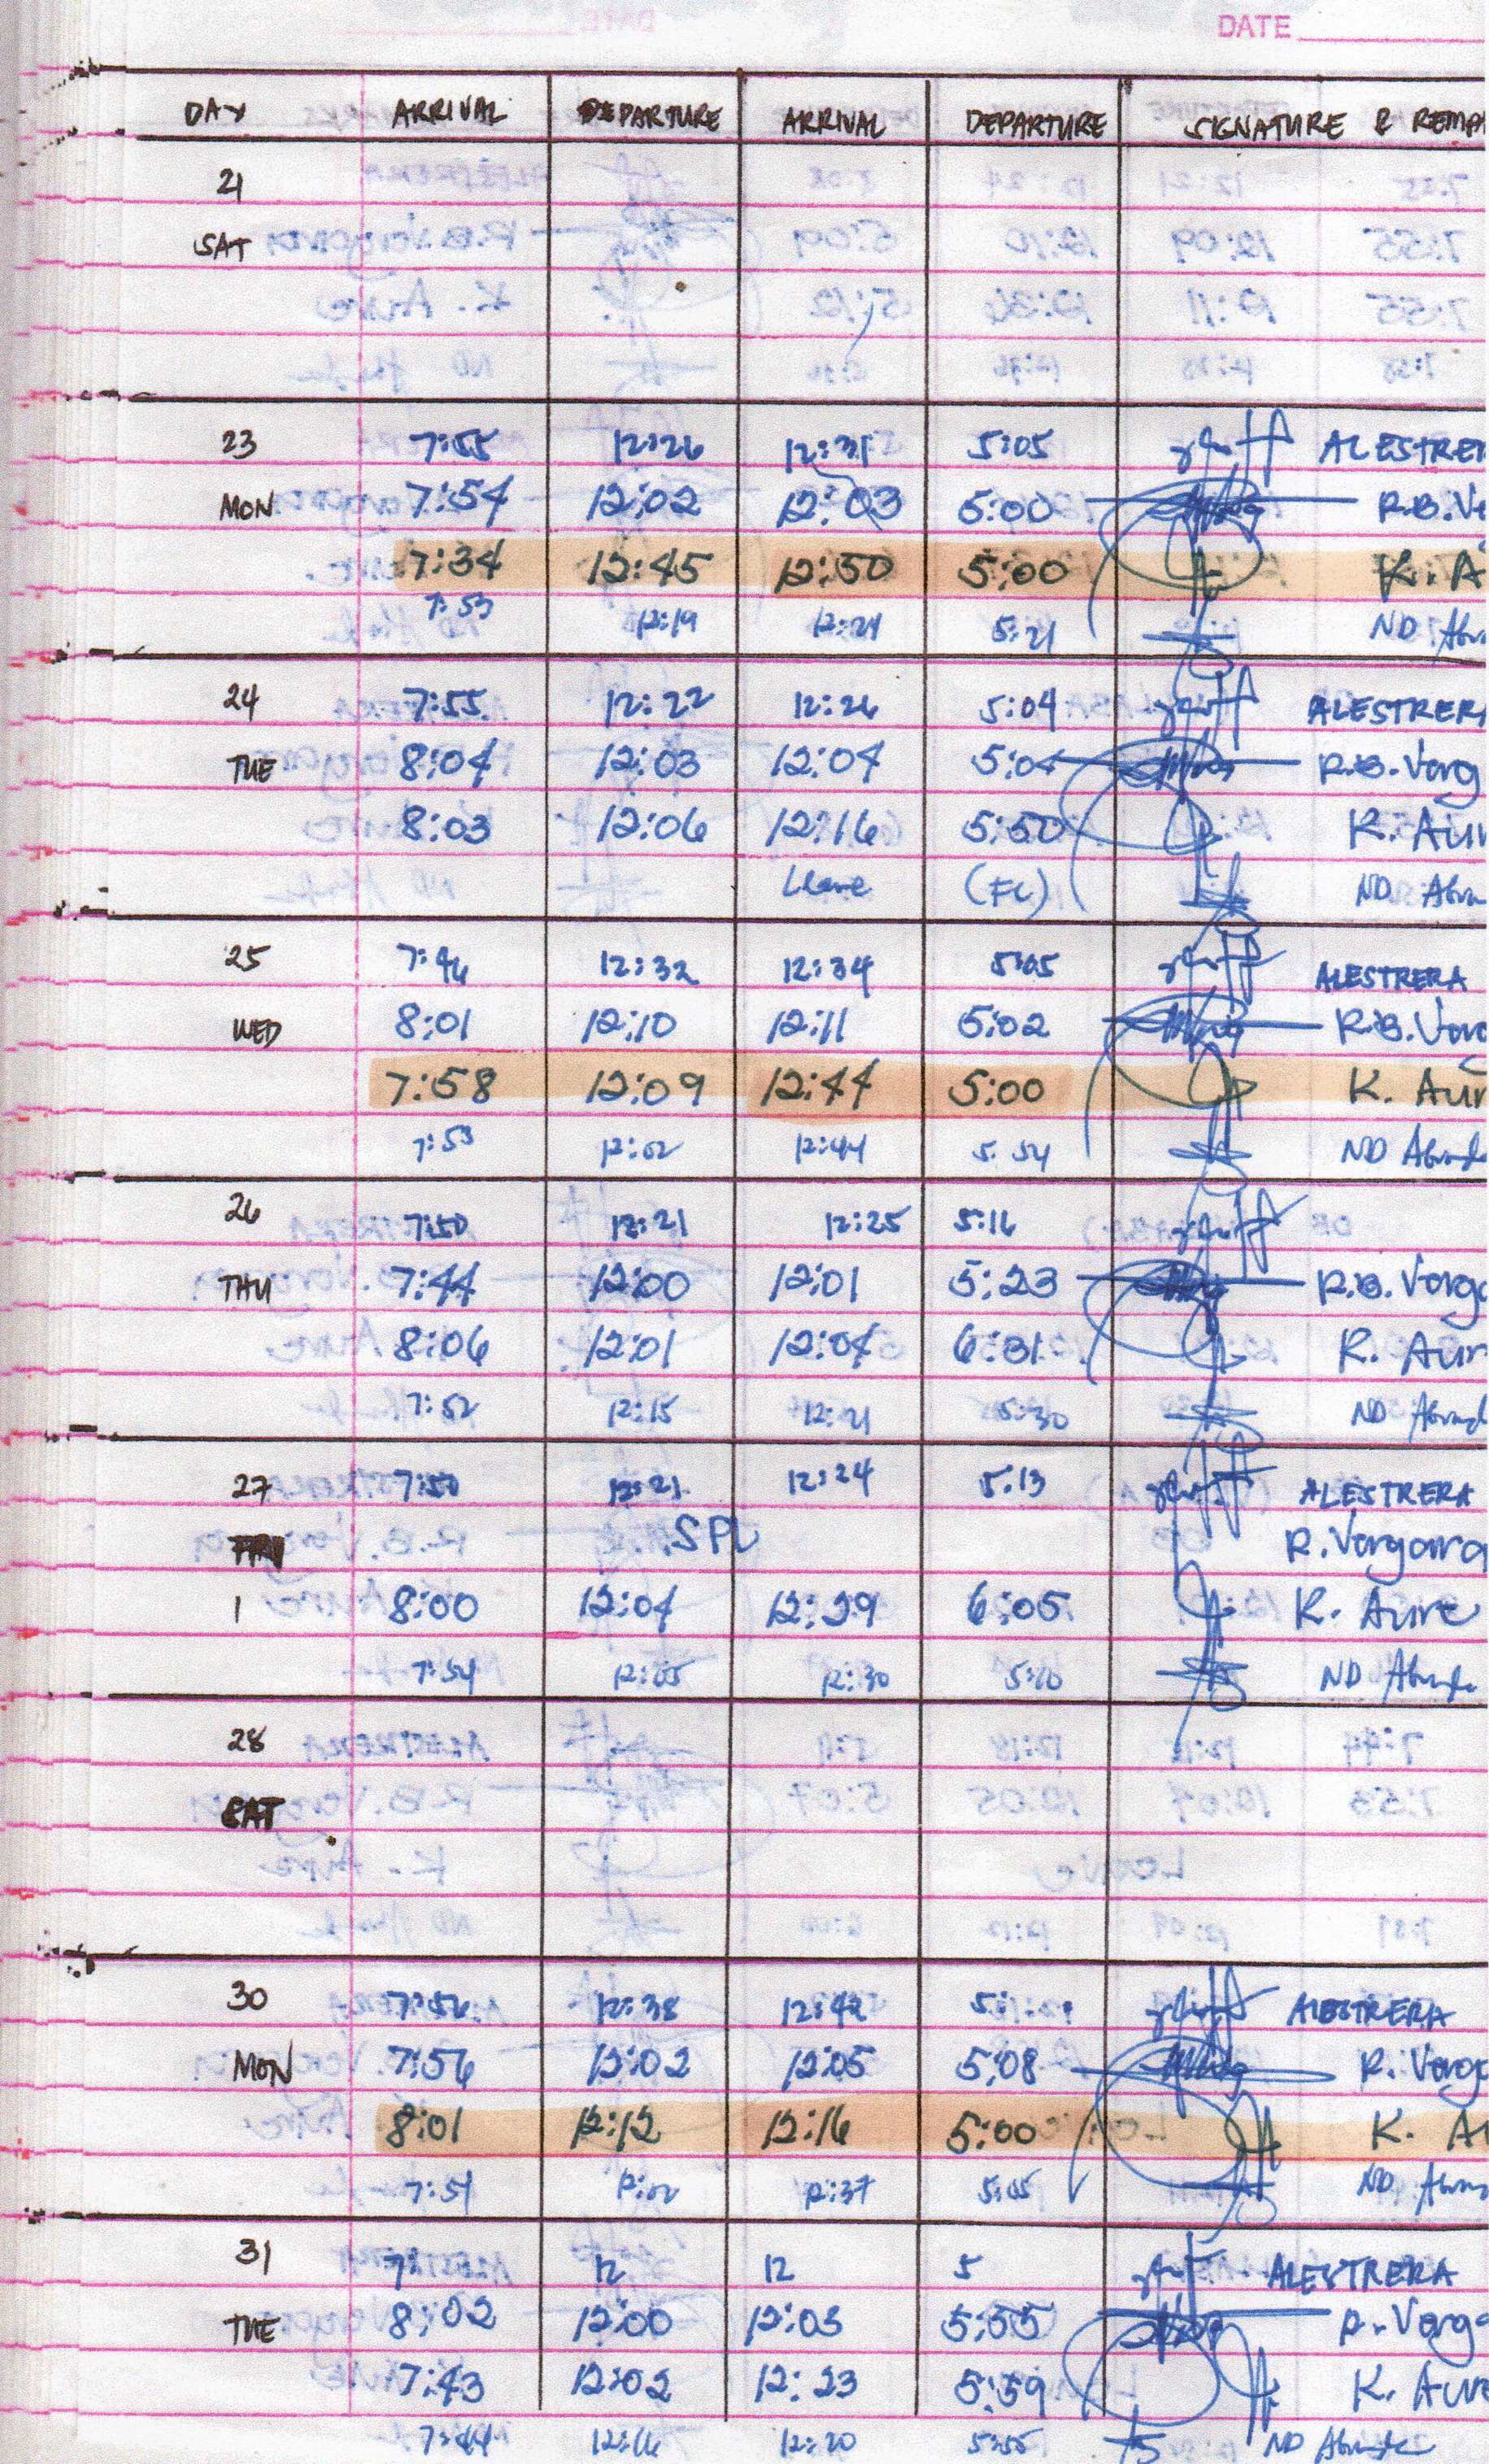 DATE
DAY ARRIVAL DEPARTURE ARRIVAL DEPARTURE SIGNATURE & REMA
21
SAT
23 7:55 12:26 12:31 5:05 ALESTRER
MON 7:54 12:02 12:03 5:00 R.B.Ve
7:34 12:45 12:50 5:00 K. A
7:53 12:19 12:21 5:21 ND
24 7:55 12:22 12:26 5:04 ALESTRER
TUE 8:04 12:03 12:04 5:04 R.B.Verg
8:03 12:06 12:16 5:50 K. Aur
Leave (FL) ND
25 7:46 12:32 12:34 5:05 ALESTRERA
WED 8:01 12:10 12:11 5:02 R.B.Verg
7:58 12:09 12:44 5:00 K. Aur
7:53 12:02 12:44 5:54 ND
26 7:50 12:21 12:25 5:16
THU 7:44 12:00 12:01 5:23 R.B.Verga
8:06 12:01 12:04 6:31 K. Aur
7:52 12:15 12:21 5:30 ND
27 7:50 12:21 12:24 5:13 ALESTRERA
FRI SPL R.Vergara
8:00 12:04 12:29 6:05 K. Aure
7:54 12:05 12:30 5:10 ND
28
SAT
30 7:56 12:38 12:42 ALESTRERA
MON 7:56 12:02 12:05 5:08 R. Verga
8:01 12:12 12:16 5:00 K. Au
7:51 12:02 12:37 5:05 ND
31 7: 12 12 5 ALESTRERA
TUE 8:02 12:00 12:03 5:55 R. Verga
7:43 12:02 12:23 5:59 K. Aure
7:44 12:16 12:20 5:55 ND